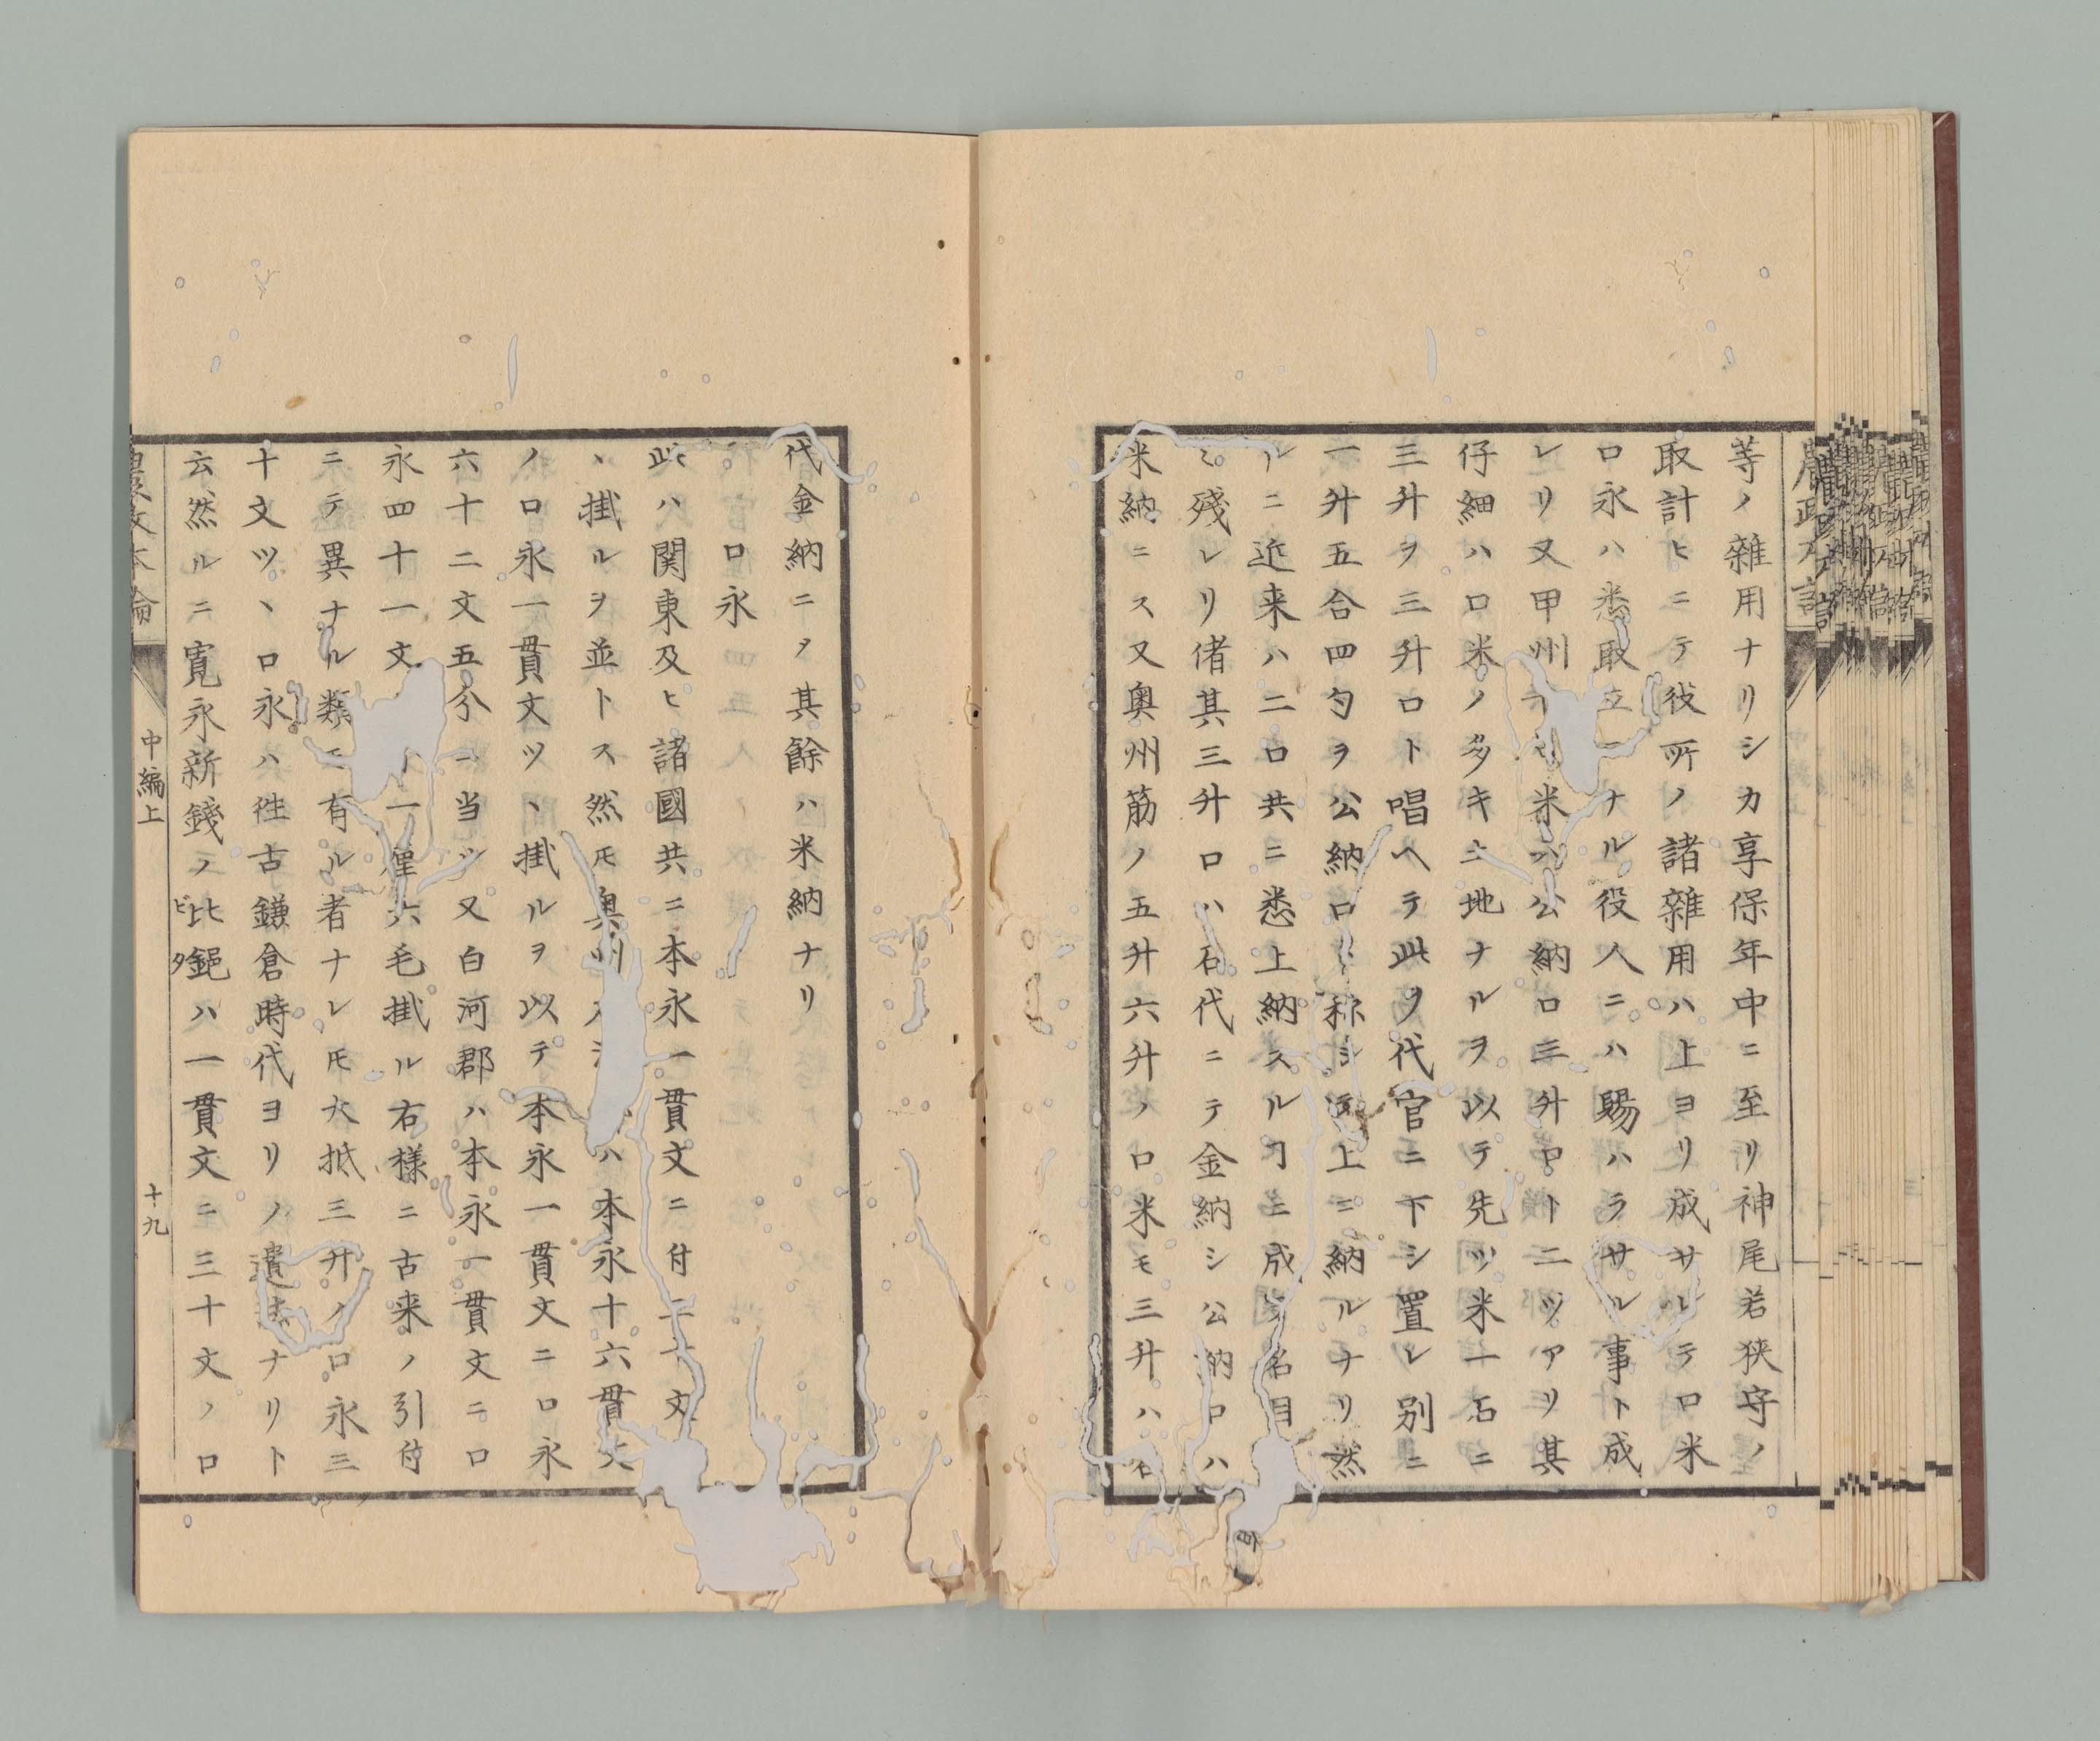 等ノ雜用ナリシカ享保年中ニ至リ神尾若狭守ノ
取計ヒニテ役所ノ諸雜用ハ上ヨリ成サルヽテロ米
口永ハ悉取立ニナル役人ニハ賜ハラサル事ト成
レリ又甲州 米ハ公納口三升口ト二ツアリ其
仔細ハ口米ノ多キ土地ナルヲ以テ先ツ米一石ニ
三升ヲ三升口ト唱ヘテ此ヲ代官ニ下シ置レ別ニ
一升五合四勺ヲ公納口ト称シテ上ニ納ルナリ然
ルニ近来ハ二口共ニ悉上納スルヿニ成 名目
ミ残レリ偖其三升口ハ石代ニテ金納シ公納口ハ
米納ニス又奥州筋ノ五升六升ノ口米モ三升ハ石
代金納ニタ其餘ハ米納ナリ
口永
此ハ関東及ヒ諸國共ニ本永一貫文ニ付三十文
ヽ掛ルヲ並トス然モ奥州 ハ本永十六貫文
ノ口永一貫文ツヽ掛ルヲ以テ本永一貫文ニ口永
六十二文五分ニ当ツ又白河郡ハ本永一貫文ニ口
永四十一文 一厘六毛掛ル右様ニ古来ノ引付
ニテ異ナル類モ有ル者ナレ𪜈大抵三升ノ口永三
十文ツヽ口永ハ徃古鎌倉時代ヨリノ遺法ナリト
云然ルニ寛永新錢ノ比鐚ハ一貫文ニ三十文ノ口
ビタ
中編上
十九